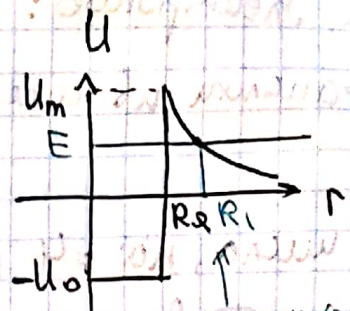 U
Um
E
R₂ R₁ r
-U₀